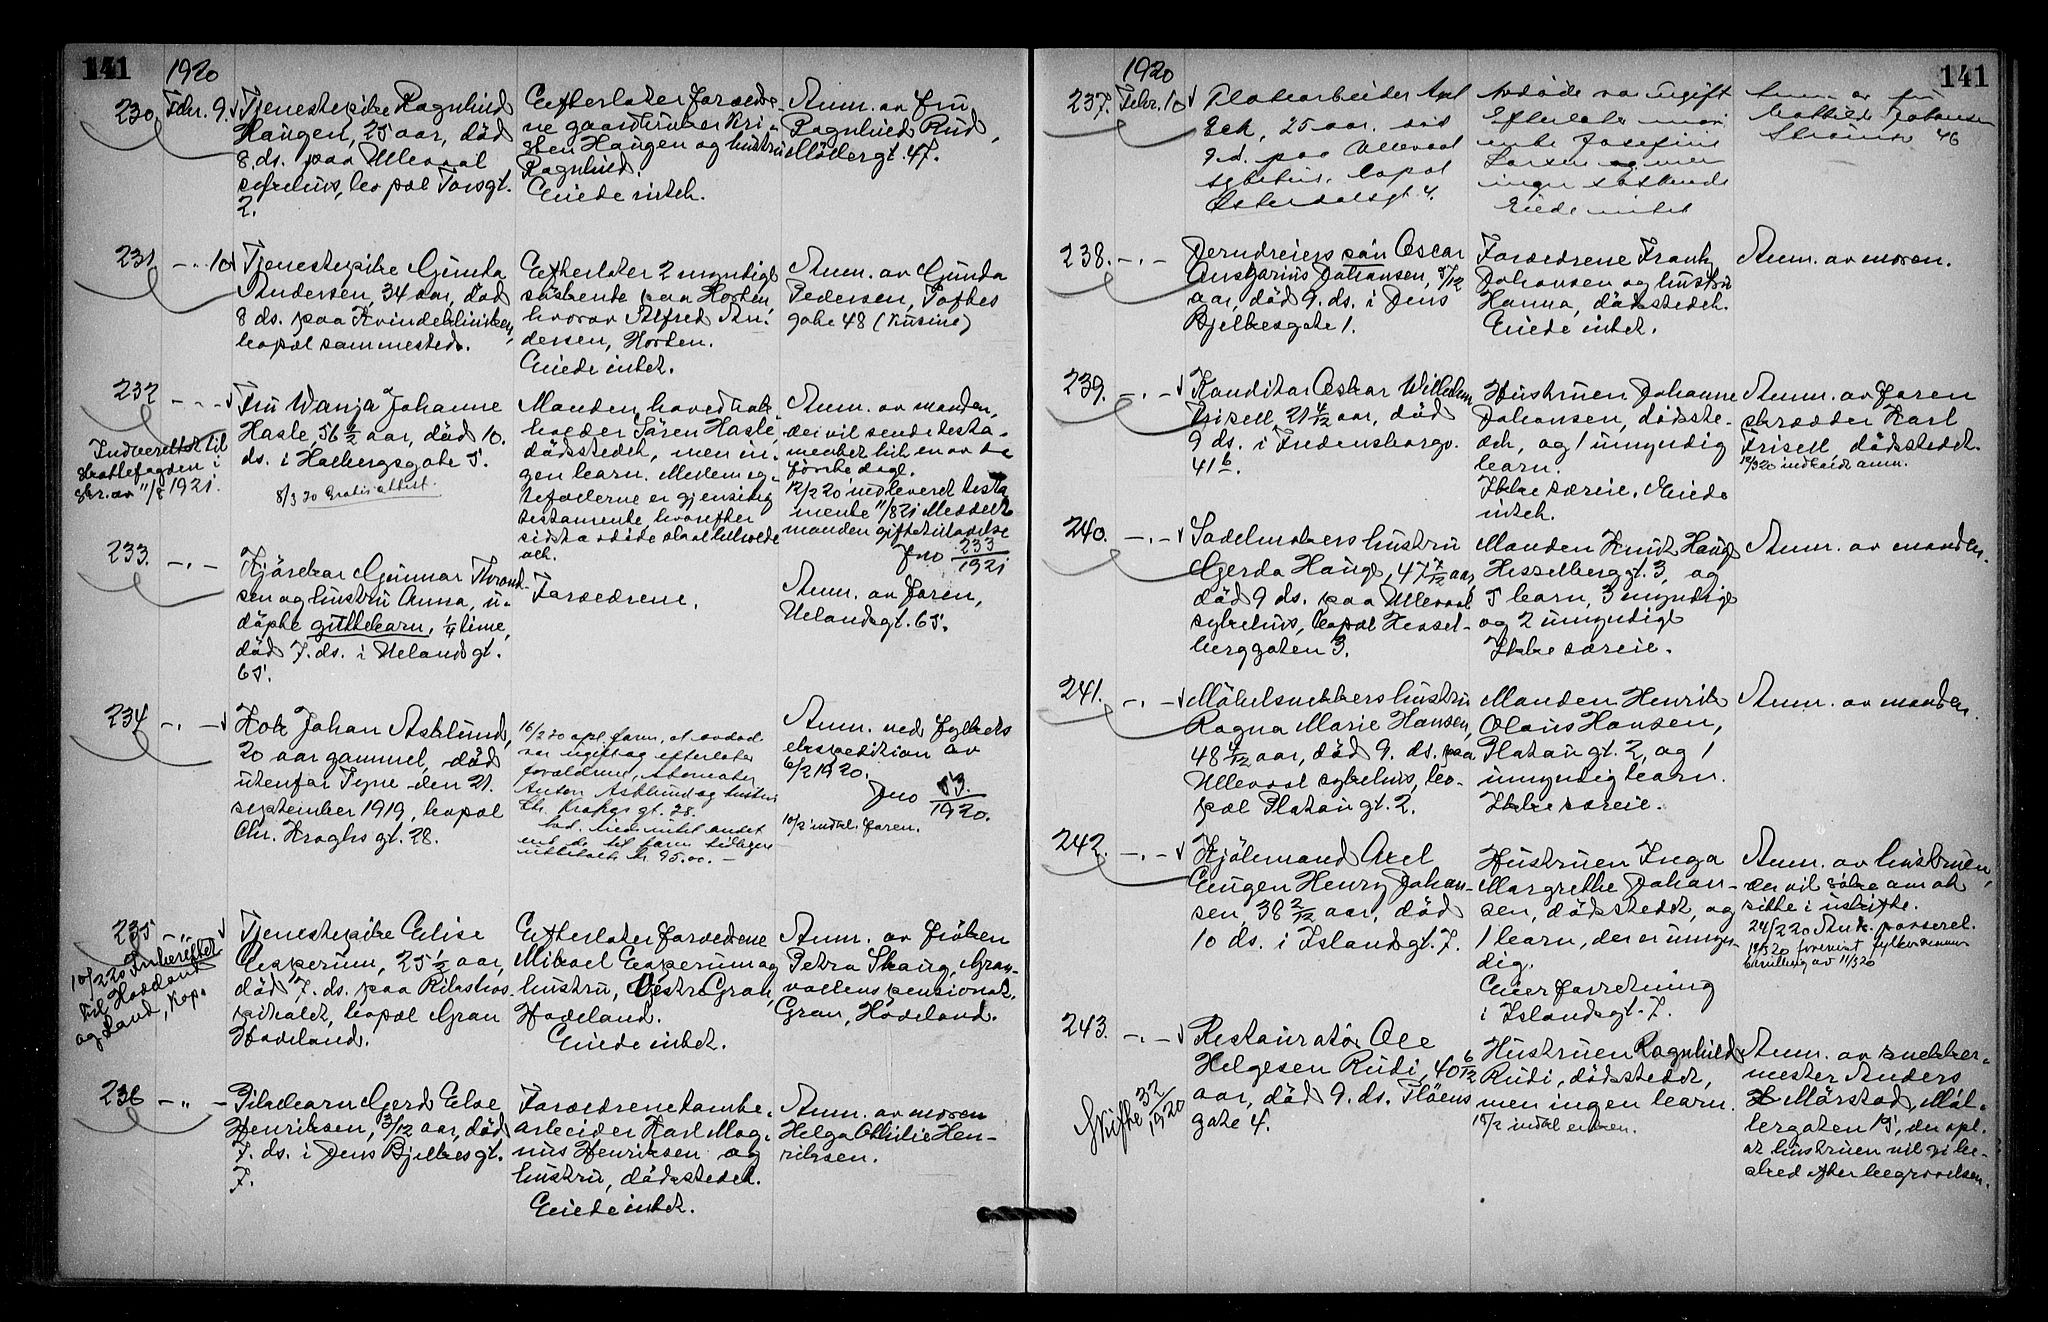 141
1920
230. Febr. 9. Tjenestepike Ragnhild
Haugen, 25 aar, död
8 ds. paa Ullevaal
sykehus, bopæl Torsgt.
2.
Efterlater foræld-
re gaardbruker Kri-
sten Haugen og hustru
Ragnhild.
Eiede intet.
Anm. av fru
Ragnhild Rud,
Möllergt. 47.
231 -"- 10 Tjenestepike Gunda
Andersen, 34 aar, död
8 ds. paa Kvindeklinikken,
bopæl sammesteds.
Efterlater 2 myndige
söskende paa Horten
hvorav Alfred An-
dersen, Horten.
Eiede intet.
Anm. av Gunda
Pedersen, Toftes
gate 48 (kusine)
232 - - - Fru Wanja Johanne
Hasle, 56 6/12 aar, död 10.
ds. i Holbergsgate 5.
8/3 20 Gratis attest.
Indberettet til
skattefogden i
skr. av 11/8 1921.
Manden, hovedbok-
holder Sören Hasle,
dödsstedet, men in-
gen barn. Mellem eg-
tefællerne er gjensidig
testamente, hvorefter
sidstavdöde skal beholde
alt.
Anm. av manden,
der vil sende testa-
mentet hit en av de
förste dage.
12/2 20 indleveret testa
mente 11/8 21 Meddelt
manden giftetilladelse
Jno 233/1921
233. -"- Kjörekar Gunnar Thrond-
sen og hustru Anna, u-
döpte guttebarn, 1/4 time,
död 7. ds. i Uelandsgt.
65.
Forældrene.
Anm. av faren,
Uelandsgt. 65.
234 -"- Kok Johan Asklund,
20 aar gammel, död
utenfor Tyne den 21.
september 1919, bopæl
Chr. Kroghs gt. 28.
16/2 20 opl. faren, at avdöde
var ugift og efterlater
forældrene,
Anton Asklund og hustru
Chr. Kroghs gt. 28.
intet andet
end de til faren tidligere
utbetalte kr. 95.00. -
Anm. ved Fylkets
ekspedition av
6/2 1920.
Jno 53./1920.
10/2 indk. faren.
235 -"- Tjenestepike Elise
Egperum, 25 1/2 aar,
död 7. ds. paa Rikshos-
pitalet, bopæl Gran
Hadeland.
10/2 20 Indberettet
til Hadeland
og Land, Kop.
Efterlater forældrene
Mikael Egperum og
hustru, Vestre Gran,
Hadeland.
Eiede intet.
Anm. av fröken
Petra Skaug, Gran-
vollens pensionat,
Gran, Hadeland.
236 -"- - Pikebarn Gerd Else
Henriksen, 3/12 aar, död
7. ds. i Jens Bjelkesgt.
7.
Forældrene tombe-
arbeider Karl Mag-
nus Henriksen og
hustru, dödsstedet.
Eiede intet.
Anm. av moren
Helga Othilie Hen-
riksen.
141
1920
237. Febr. 10 Platearbeider Axel
Eek, 25 aar. död
9 d. paa Ullevaal
sykehus. bopæl
Österdalsgt. 4.
Avdöde var ugift
Efterlater mor
enke Josefine
Larsen og men
ingen söskende
Eiede intet
Anm. av fru
Mathilde Johansen
46
238. -"- Jerndreiers sön Oscar
Ansgarius Johansen, 5/12
aar, död 9. ds. i Jens
Bjelkesgate 1.
Forældrene Frank
Johansen og hustru
Hanna, dödsstedet.
Eiede intet.
Anm. av moren.
239. -"- Konditor Oskar Wilhelm
Frisell, 21 4/12 aar, död
9 ds. i Fredensborgv.
41 b.
Hustruen Johanne
Johansen, dödsste-
det, og 1 umyndig
barn.
Ikke særeie. Eiede
intet.
Anm. av faren
skrædder Karl
Frisell dödsstedet.
12/3 20 indkaldt anm.
240. -"- Sadelmakers hustru
Gerda Hauge, 47 7/12 aar,
död 9 ds. paa Ullevaal
sykehus, bopæl Hessel-
berggaten 3.
Manden Knut Hauge
Hesselberggt. 3, og
5 barn, 3 myndige
og 2 umyndige
Ikke særeie.
Anm. av manden.
241. -"- Möbelsnekkers hustru
Ragna Marie Hansen,
48 4/12 aar, död 9. ds. paa
Ullevaal sykehus, bo-
pæl Platou gt. 2.
Manden Henrik
Olaus Hansen,
Platou gt. 2, og 1
umyndig barn.
Ikke særeie.
Anm. av manden.
242. -"- Kjölemand Axel
Eugen Henry Johan-
sen, 38 2/12 aar, död
10 ds. i Islandsgt. 7.
Hustruen Inga
Margrethe Johan-
sen, dödsstedet, og
1 barn, der er umyn-
dig.
Eier forretning
i Islandsgt. 7.
Anm. av hustruen,
der vil söke om at
sitte i uskifte.
24/2 20 Ansk. passeret.
18/3 20 forevist fylkesmannens
bevilling av 11/3 20
243. -"- Restauratör Ole
Helgesen Rudi, 40 6/12
aar, död 9. ds. Flöens
gate 4.
Skifte 32/1920
Hustruen Ragnhild
Rudi, dödsstedet,
men ingen barn.
18/2 indkl enken.
Anm. av snekker-
mester Anders
H Mörstad, Möl-
lergaten 15, der opl.
at hustruen vil gi be-
sked efter begravelsen.